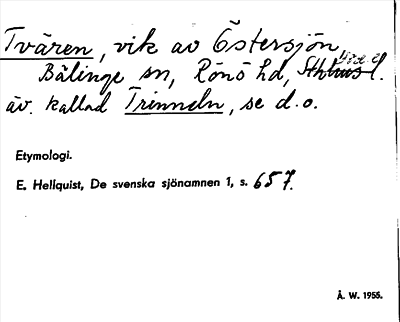 Tvären, vik av Östersjön,
Bälinge sn, Rönö hd, Sthlms l.
äv. kallad Trinneln, se d.o.
Etymologi.
E. Hellquist, De svenska sjönamnen 1, s. 657.
Å. W. 1955.